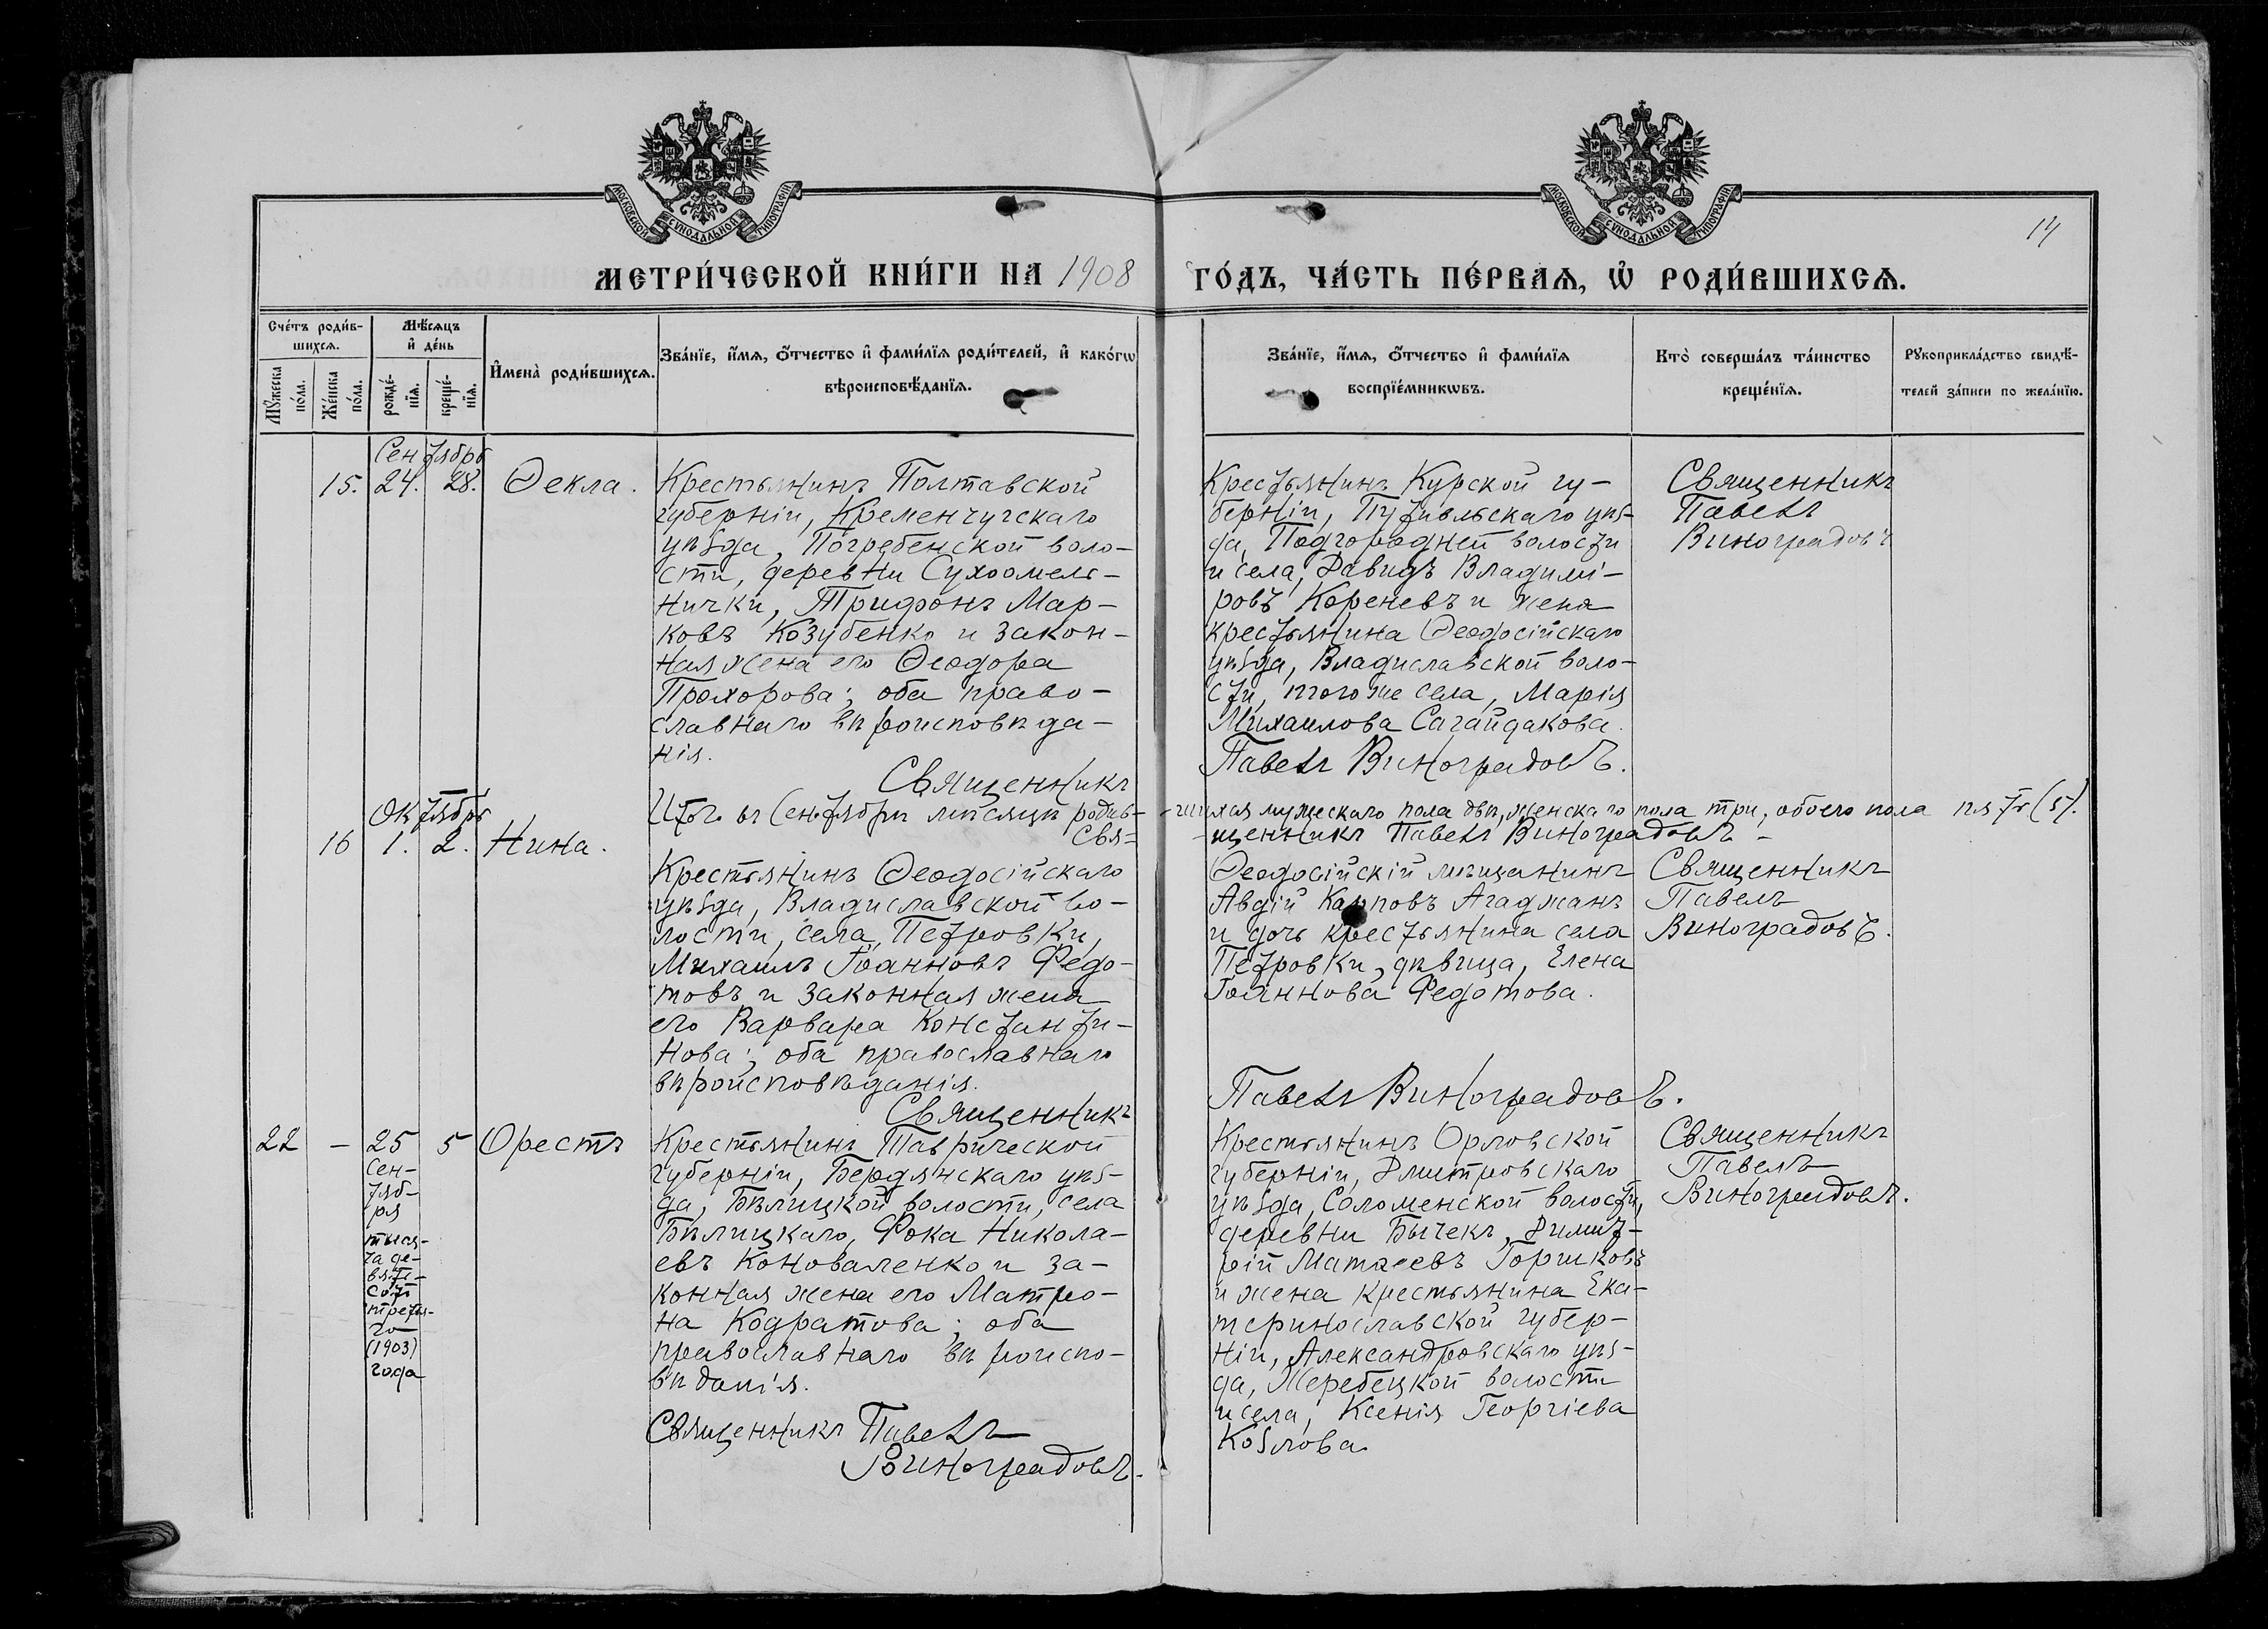 МОСКОВСКОЙ СѴНОДАЛЬНОЙ ТИПОГРАФІИ
МОСКОВСКОЙ СѴНОДАЛЬНОЙ ТИПОГРАФІИ
14
МЕТРИ́ЧЕСКОЙ КНИ́ГИ НА 1908 ГО́ДЪ, ЧА́СТЬ ПЕ́РВАѦ, Ѡ҆ РОДИ́ВШИХСѦ.
Сче́тъ роди́в-
шихсѧ.
Мꙋ́жеска
по́ла.
Же́нска
по́ла.
Мѣ́сѧцъ
и҆ де́нь
рожде́-
нїѧ.
креще́-
нїѧ.
И҆мена̀ роди́вшихсѧ.
Зва́нїе, и҆́мѧ, ѻ҆́тчество и҆ фами́лїѧ роди́телей, и҆ како́гѡ
вѣроисповѣ́данїѧ.
Зва́нїе, и҆́мѧ, ѻ҆́тчество и҆ фами́лїѧ
воспрїе́мникѡвъ.
Кто̀ соверша́лъ та́инство
креще́нїѧ.
Рꙋкоприкла́дство свидѣ́-
телей за́писи по жела́нїю.
Сентябрь
15. 24. 28. Ѳекла.
Крестьянинъ Полтавской
губерніи, Кременчугскаго
уѣзда, Погребенской воло-
сти, деревни Сухоомель-
нички, Трифонъ Мар-
ковъ Козубенко и закон-
ная жена его Ѳеодора
Прохорова; оба право-
славнаго вѣроисповѣда-
нія.
Священникъ
Крестьянинъ Курской гу-
берніи, Путивльскаго уѣз-
да, Подгородней волости
и села, Давидъ Владимі-
ровъ Кореневъ и жена
крестьянина Ѳеодосійскаго
уѣзда, Владиславской воло-
сти, того же села, Марія
Михаилова Сагайдакова.
Павелъ Виноградовъ.
Священникъ
Павелъ
Виноградовъ
Итого въ Сентябрѣ мѣсяцѣ родив-шихся мужескаго пола два, женскаго пола три, обоего пола пять (5).
Свя-щенникъ Павелъ Виноградовъ -
Октябрь
16 1. 2. Нина.
Крестьянинъ Ѳеодосійскаго
уѣзда, Владиславской во-
лости, села, Петровки,
Михаилъ Іоанновъ Федо-
товъ и законная жена
его Варвара Константи-
нова; оба православнаго
вѣроисповѣданія.
Священникъ
Ѳеодосійскій мѣщанинъ
Авдій Карповъ Агаджанъ
и дочь крестьянина села
Петровки, дѣвица, Елена
Іоаннова Федотова.
Павелъ Виноградовъ.
Священникъ
Павелъ
Виноградовъ.
22 - 25 5 Орестъ
Сен-
тяб-
ря
тыся-
ча де-
вять-
сотъ
третья-
го
(1903)
года
Крестьянинъ Таврической
губерніи, Бердянскаго уѣз-
да, Бѣлицкой волости, села
Бѣлицкаго, Фока Никола-
евъ Коноваленко и за-
конная жена его Матро-
на Кодратова; оба
православнаго вѣроиспо-
вѣданія.
Священникъ Павелъ
Виноградовъ.
Крестьянинъ Орловской
губерніи, Дмитровскаго
уѣзда, Соломенской волости,
деревни Бычекъ, Димит-
рій Матѳеевъ Горшковъ
и жена крестьянина Ека-
теринославской губер-
ніи, Александровскаго уѣз-
да, Жеребецкой волости
и села, Ксенія Георгіева
Козлова
Священникъ
Павелъ
Виноградовъ.